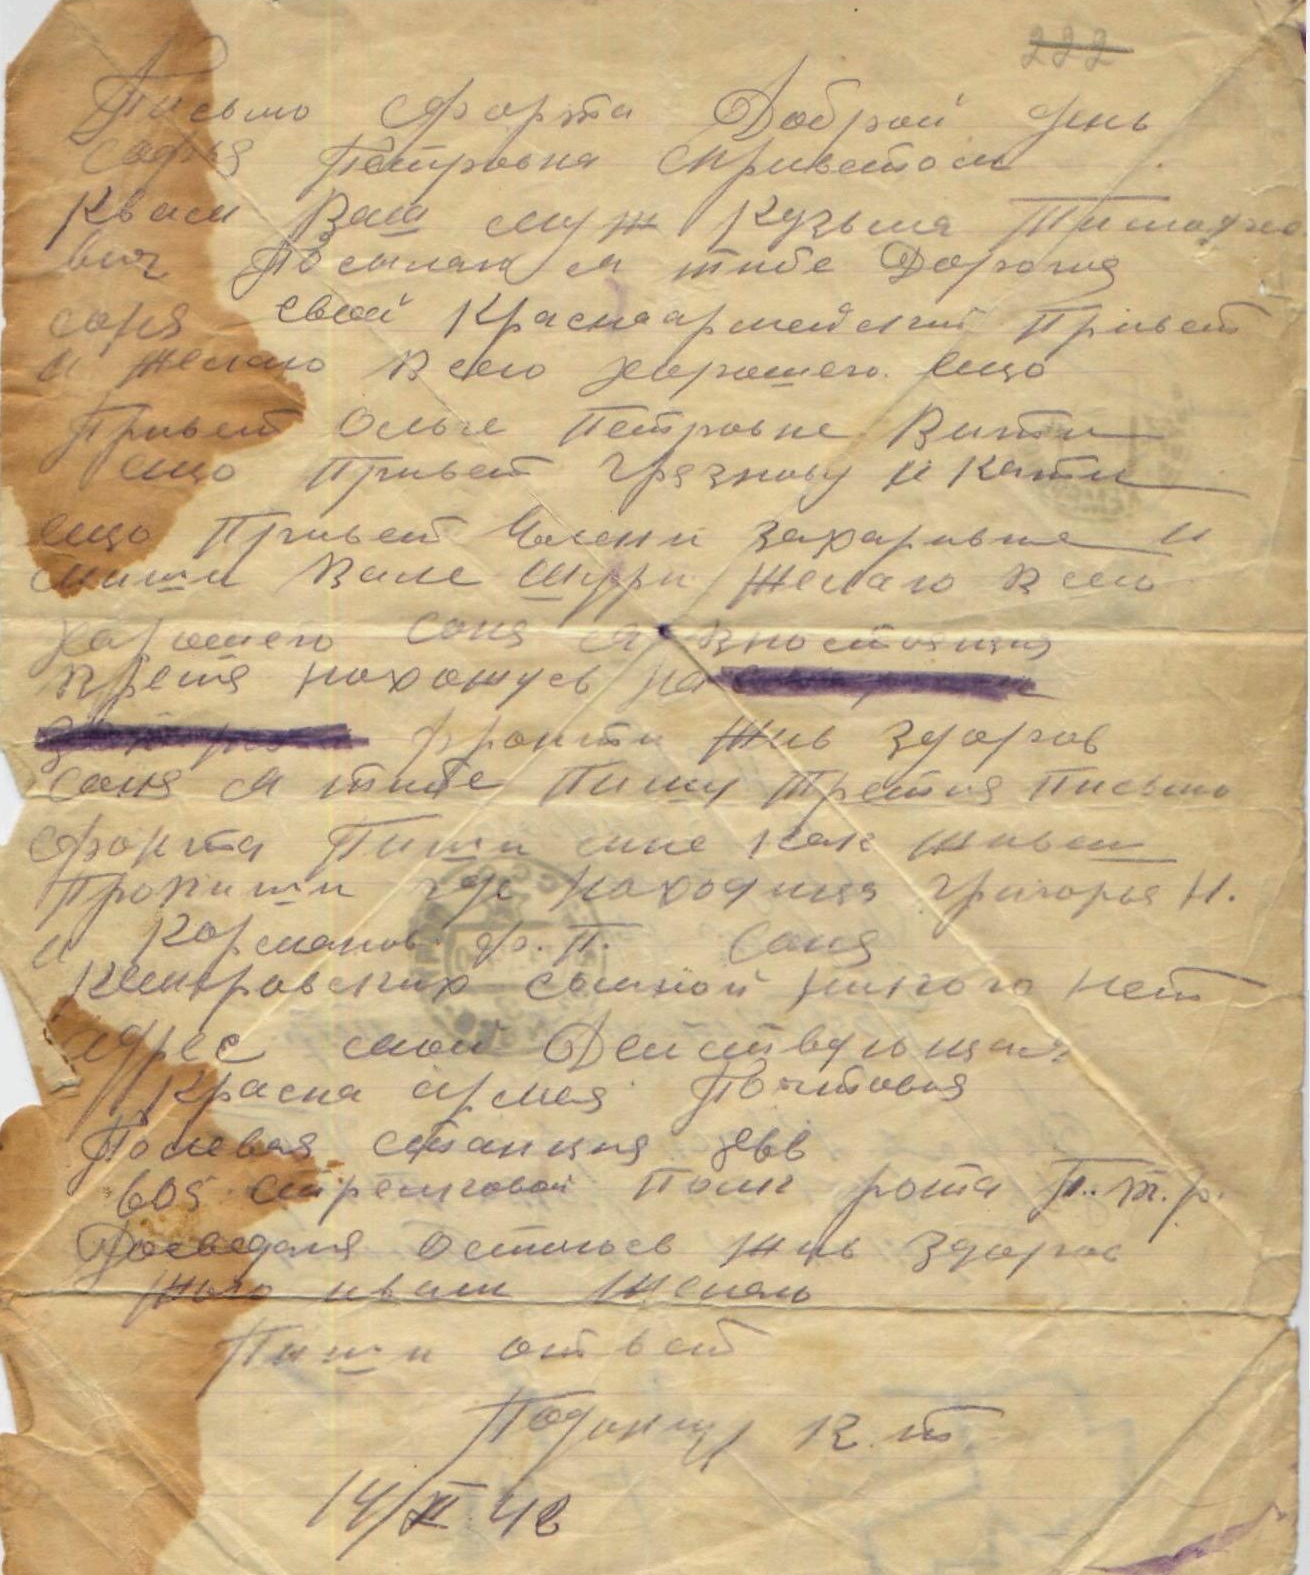 222
Письмо сфорта Доброй день
Софья Петровна сприветом
Квам Ваш муж Кузьма Тимофее
вич Посылаю я тибе Дорогия
соня свой Краснаармейский Привет
и желаю всего харошего. ещо
Привет Ольге Петровне Вити
ещо Привет Грязнову и Кати
ещо Привет Елени Захаровне и
Миши Вале Шури желаю всего
харошего Соня я внастоящия
Время нахожусь на
фронти жив здоров
Соня я тибе Пишу Третия письмо
сфронта Пиши мне как живеш
Пропиши где находица григорья Н.
и Карманов ф. П. Соня
Кемеровских сомной никого нет
адрес мой Действующая
Красна армея Почтовая
Полевая станция 866
605 стрелковой Полк рота П.т.р.
Досведаня Остаюсь жив здоров
жого ивам желаю
Пиши ответ
К. т
14/XI 42